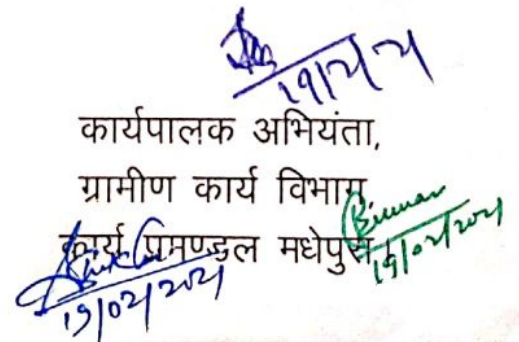 19/2/21
कार्यपालक अभियंता,
ग्रामीण कार्य विभाग
कार्य प्रमण्डल मधेपुरा।
19/02/2021
19/02/2021